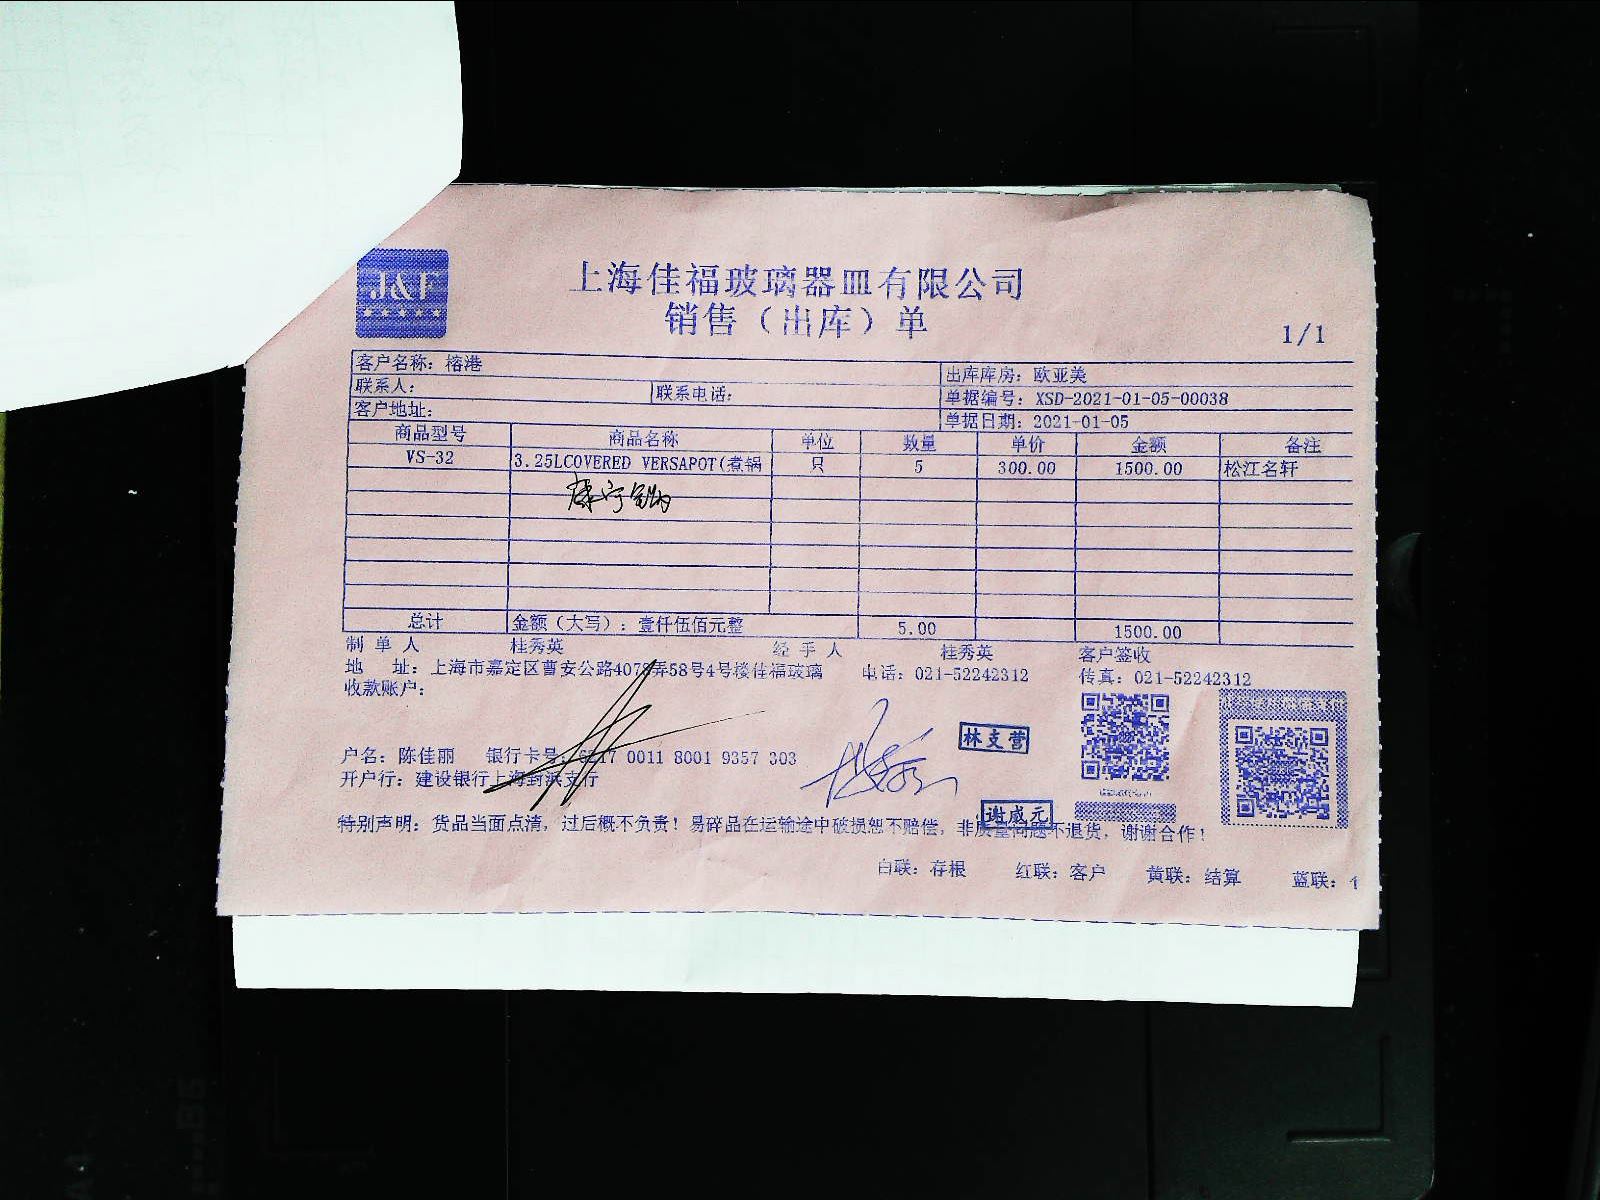 J&F
上海佳福玻璃器皿有限公司
销售（出库）单
1/1
客户名称：榕港
出库库房：欧亚美
联系人：
联系电话：
单据编号：XSD-2021-01-05-00038
客户地址：
单据日期：2021-01-05
商品型号 商品名称 单位 数量 单价 金额 备注
VS-32 3.25LCOVERED VERSAPOT(煮锅 只 5 300.00 1500.00 松江名轩
康宁锅
总计 金额（大写）：壹仟伍佰元整 5.00 1500.00
制单人 桂秀英 经手人 桂秀英 客户签收
地 址：上海市嘉定区曹安公路4078弄58号4号楼佳福玻璃 电话：021-52242312 传真：021-52242312
收款账户：
林支营
户名：陈佳丽 银行卡号：6217 0011 8001 9357 303
开户行：建设银行上海封浜支行
谢咸元
特别声明：货品当面点清，过后概不负责！易碎品在运输途中破损恕不赔偿，非质量问题不退货，谢谢合作！
白联：存根 红联：客户 黄联：结算 蓝联：